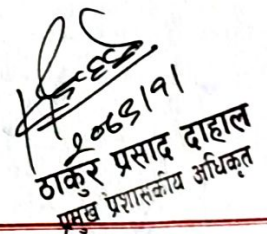 २०७९।१।
ठाकुर प्रसाद दाहाल
प्रमुख प्रशासकीय अधिकृत